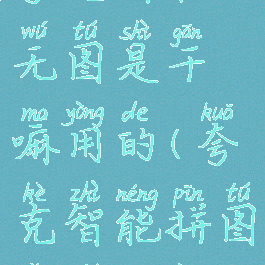 wú tú shì gàn
无图是干
ma yòng de kuā
嘛用的(夸
kè zhì néng pīn tú
克智能拼图